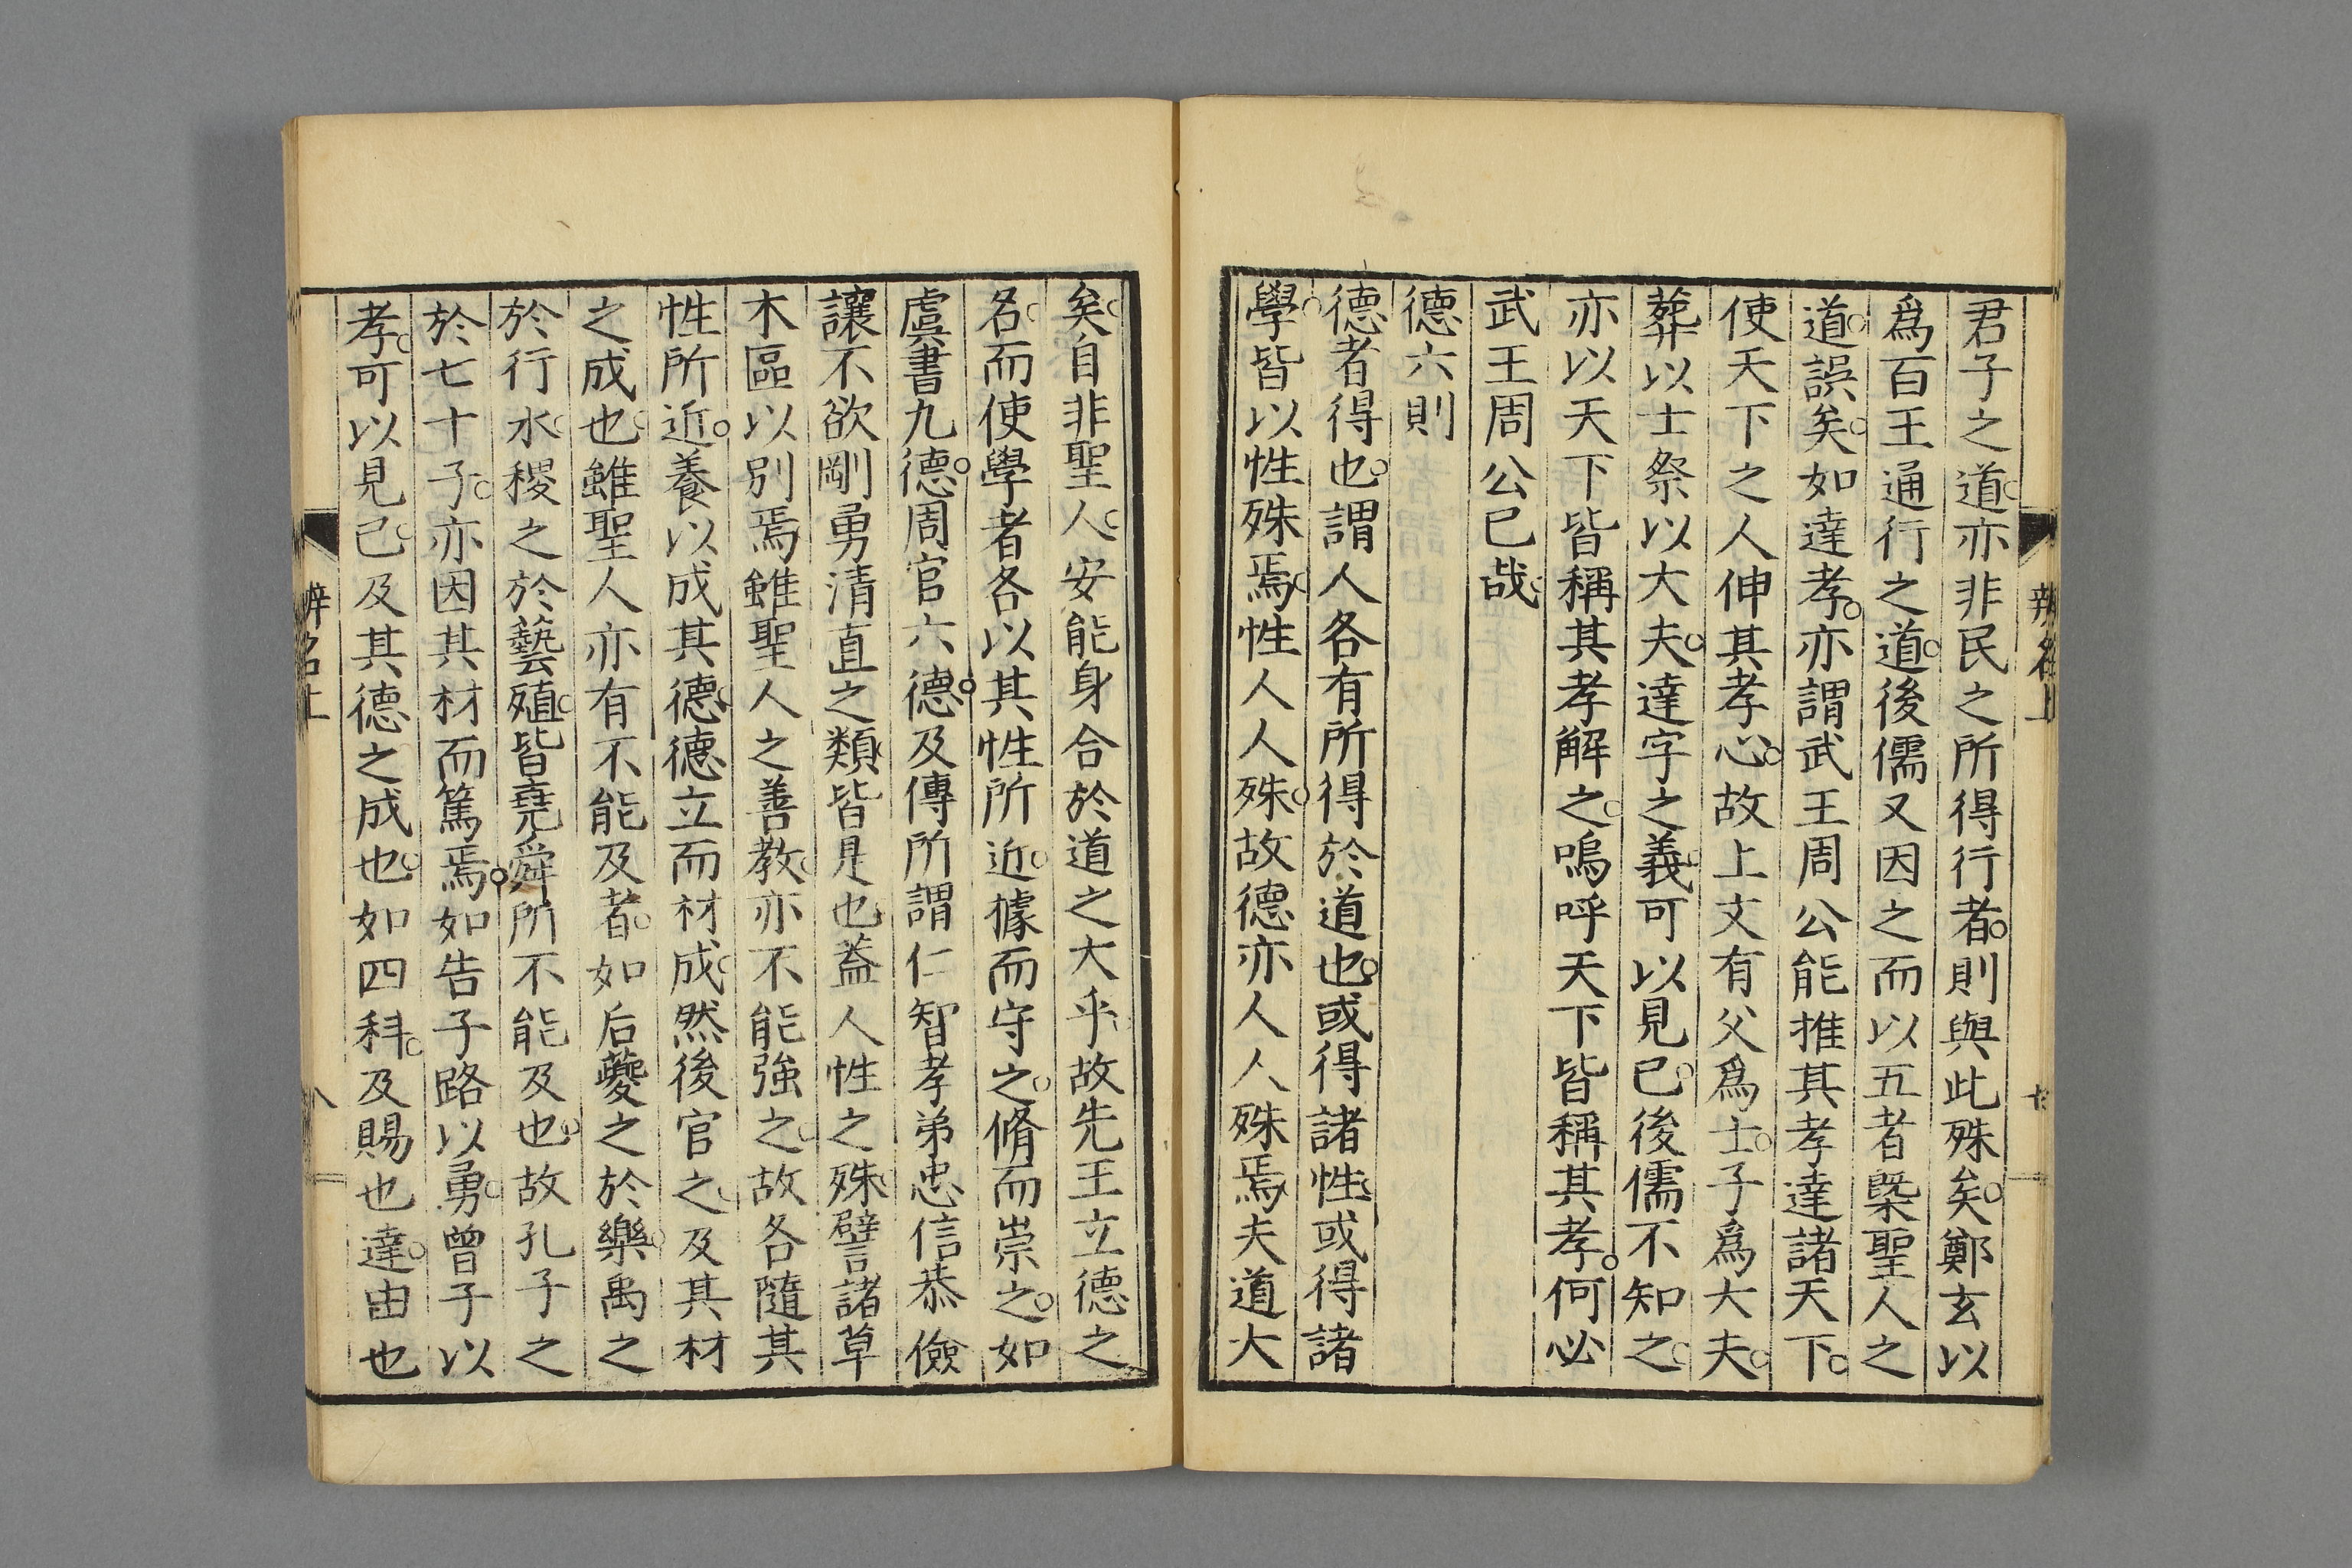 君子之道亦非民之所得行者則與此殊矣鄭玄以
爲百王通行之道後儒又因之而以五者槩聖人之
道誤矣如達孝亦謂武王周公能推其孝達諸天下
使天下之人伸其孝心故上文有父爲士子爲大夫
葬以士祭以大夫達字之義可以見已後儒不知之
亦以天下皆稱其孝解之嗚呼天下皆稱其孝何必
武王周公已哉
德六則
德者得也謂人各有所得於道也或得諸性或得諸
學皆以性殊焉性人人殊故德亦人人殊焉夫道大
矣自非聖人安能身合於道之大乎故先王立德之
名而使學者各以其性所近據而守之脩而崇之如
虞書九德周官六德及傳所謂仁智孝弟忠信恭儉
讓不欲剛勇清直之類皆是也蓋人性之殊譬諸草
木區以別焉雖聖人之善教亦不能強之故各隨其
性所近養以成其德德立而材成然後官之及其材
之成也雖聖人亦有不能及者如后夔之於樂禹之
於行水稷之於藝殖皆堯舜所不能及也故孔子之
於七十子亦因其材而篤焉如告子路以勇曾子以
孝可以見已及其德之成也如四科及賜也達由也
辨名上
八